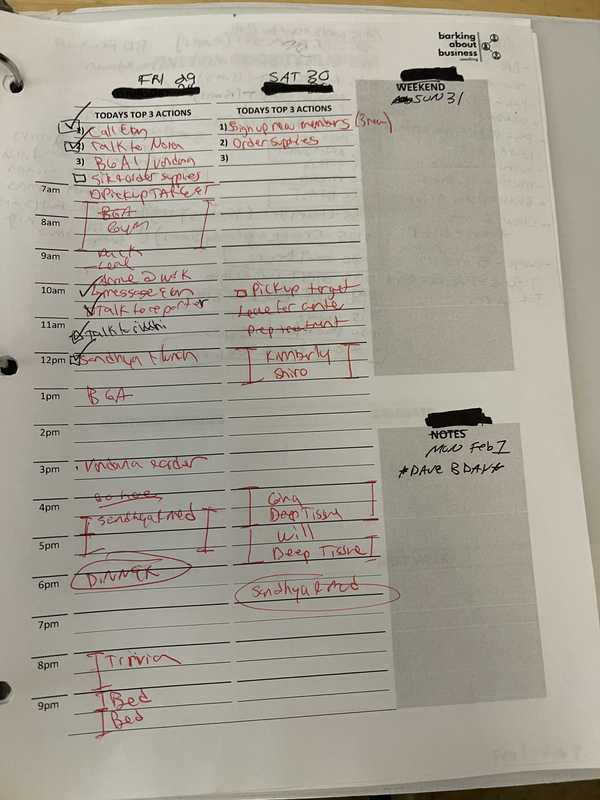 barking
about
business
consulting
FRI 29
SAT 30
WEEKEND
SUN 31
TODAYS TOP 3 ACTIONS
TODAYS TOP 3 ACTIONS
1) Call Ebn
1) Sign up new members (3 new)
2) Talk to Nora
2) Order supplies
3) BGA! / Vandana
3)
order supplies
7am
Pick up TARGET
BGA
8am
Gym
9am
10am
message Ebn
Pick up target
Talk to reporter
Leave for center
11am
Talk to
Prep treatment
12pm
Sandhya + lunch
Kimberly
Shiro
1pm
BGA
2pm
NOTES
MON Feb 1
*DAVE BDAY*
3pm
Vandana order
4pm
Sandhya + med
Deep Tissue
5pm
Will
Deep Tissue
6pm
DINNER
Sandhya & Med
7pm
8pm
Trivia
9pm
Bed
Bed